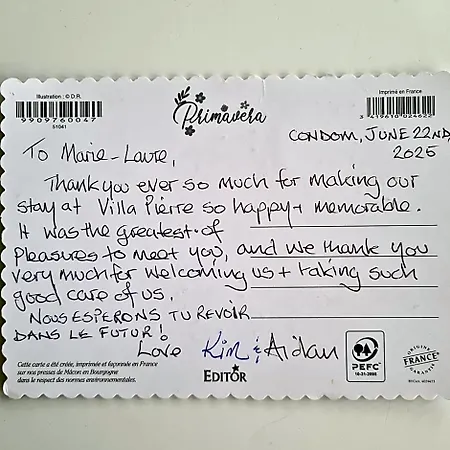 Illustration : © D.R.
9909760047
51041
Primavera
Imprimé en France
3 419610 024622
CONDOM, JUNE 22ND,
2025
To Marie-Laure,
Thank you ever so much for making our
stay at Villa Pierre so happy + memorable.
It was the greatest of
Pleasures to meet you, and we thank you
very much for welcoming us + taking such
good care of us.
NOUS ESPERONS TU REVOIR
DANS LE FUTUR !
Love Kim & Aidan
Cette carte a été créée, imprimée et façonnée en France
sur nos presses de Mâcon en Bourgogne
dans le respect des normes environnementales.
EDITOR
PEFC
10-31-2008
ORIGINE
FRANCE